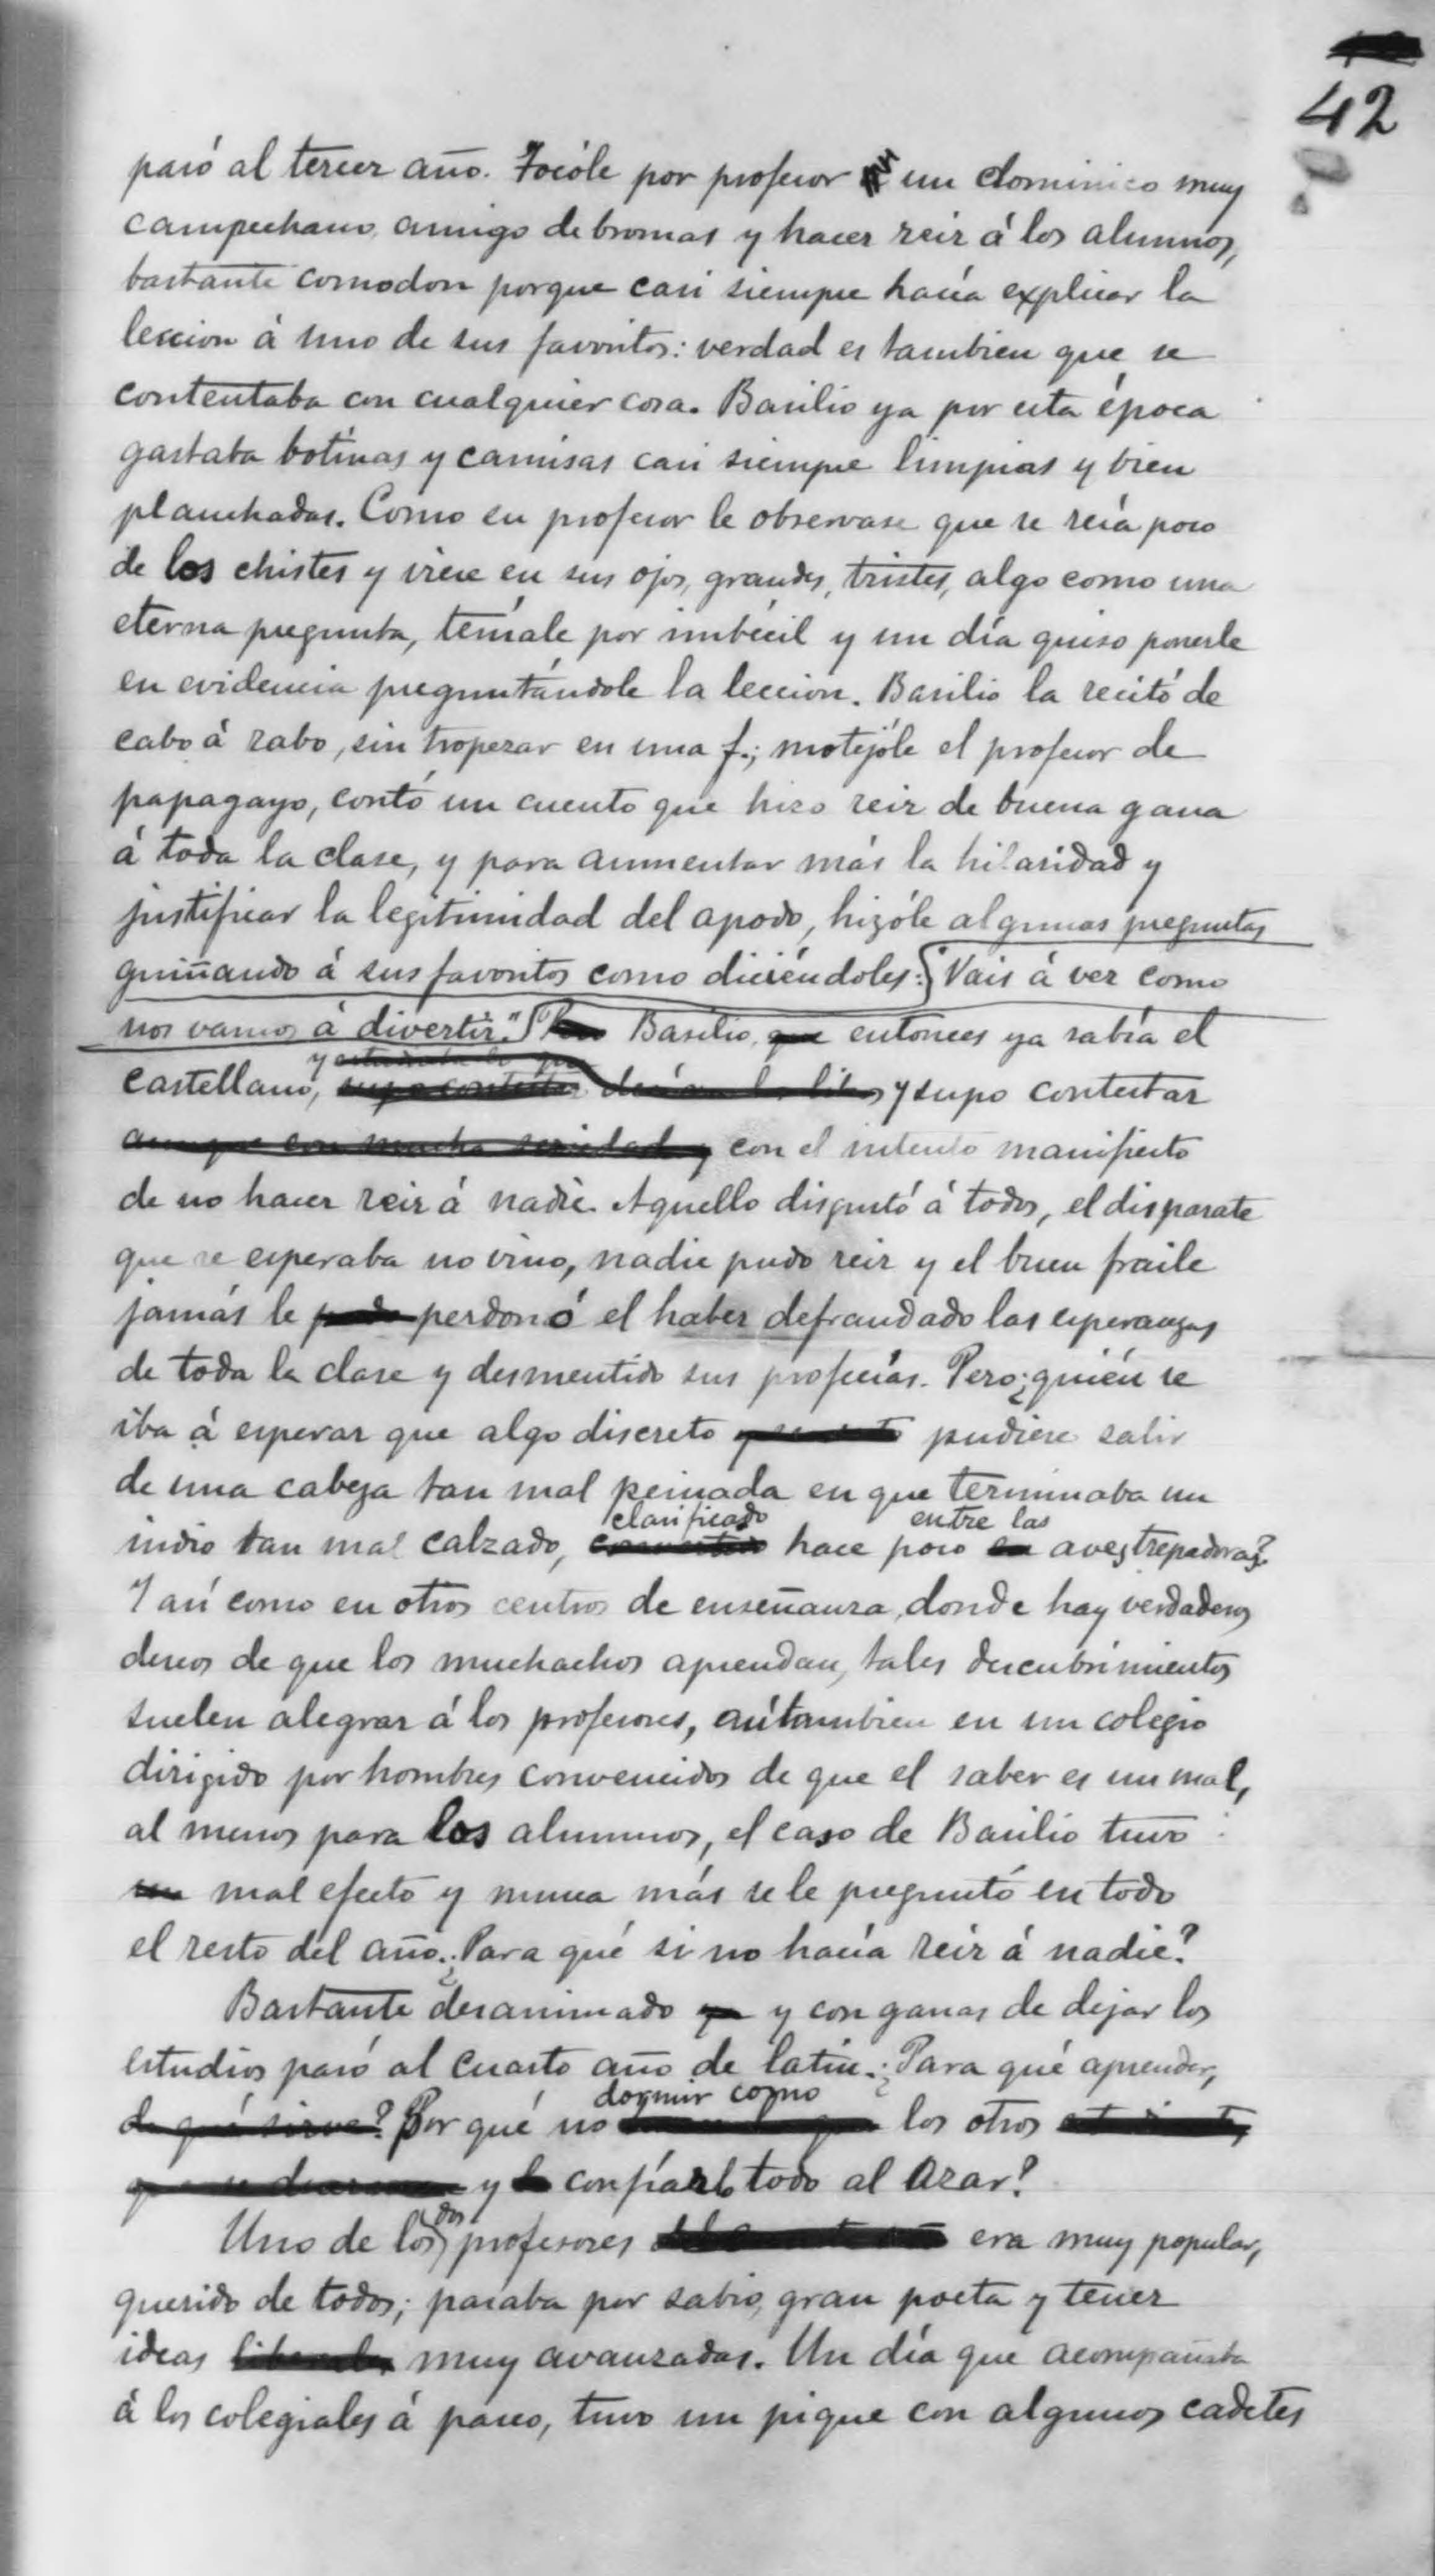 42
pasó al tercer año. Tocóle por profesor un dominico muy
campechano, amigo de bromas y hacer reir á los alumnos,
bastante comodon porque casi siempre hacía explicar la
leccion á uno de sus favoritos: verdad es tambien que se
contentaba con cualquier cosa. Basilio ya por esta época
gastaba botinas y camisas casi siempre limpias y bien
planchadas. Como su profesor le observase que se reía poco
de los chistes y viese en sus ojos, grandes, tristes, algo como una
eterna pregunta, teníale por imbécil y un día quiso ponerle
en evidencia preguntándole la leccion. Basilio la recitó de
cabo á rabo, sin tropezar en una f.; motejóle el profesor de
papagayo, contó un cuento que hizo reir de buena gana
á toda la clase, y para aumentar más la hilaridad y
justificar la legitimidad del apodo, hizóle algunas preguntas
guiñando á sus favoritos como diciéndoles: Vais á ver como
nos vamos á divertir." Basilio, que entonces ya sabía el
y estudiaba
castellano, supo contestar y supo contestar
aunque con mucha seriedad y con el intento manifiesto
de no hacer reir á nadie. Aquello disgustó á todos, el disparate
que se esperaba no vino, nadie pudo reir y el buen fraile
jamás le pudo perdonó el haber defraudado las esperanzas
de toda la clase y desmentido sus profecías. Pero ¿quién se
iba á esperar que algo discreto pudiese salir
de una cabeza tan mal peinada en que terminaba un
clasificado entre las
indio tan mal calzado, hace poco en aves trepadoras?
Y así como en otros centros de enseñanza, donde hay verdaderos
deseos de que los muchachos aprendan, tales descubrimientos
suelen alegrar á los profesores, así tambien en un colegio
dirigido por hombres convencidos de que el saber es un mal,
al menos para los alumnos, el caso de Basilio tuvo
un mal efecto y nunca más se le preguntó en todo
el resto del año. ¿Para qué si no hacía reir á nadie?
Bastante desanimado y con ganas de dejar los
estudios pasó al cuarto año de latin. ¿Para qué aprender,
dormir como
de qué sirve? Por qué no los otros
y confiarlo todo al azar?
dos
Uno de los profesores era muy popular,
querido de todos; pasaba por sabio, gran poeta y tener
ideas liberales muy avanzadas. Un día que acompañaba
á los colegiales á paseo, tuvo un pique con algunos cadetes